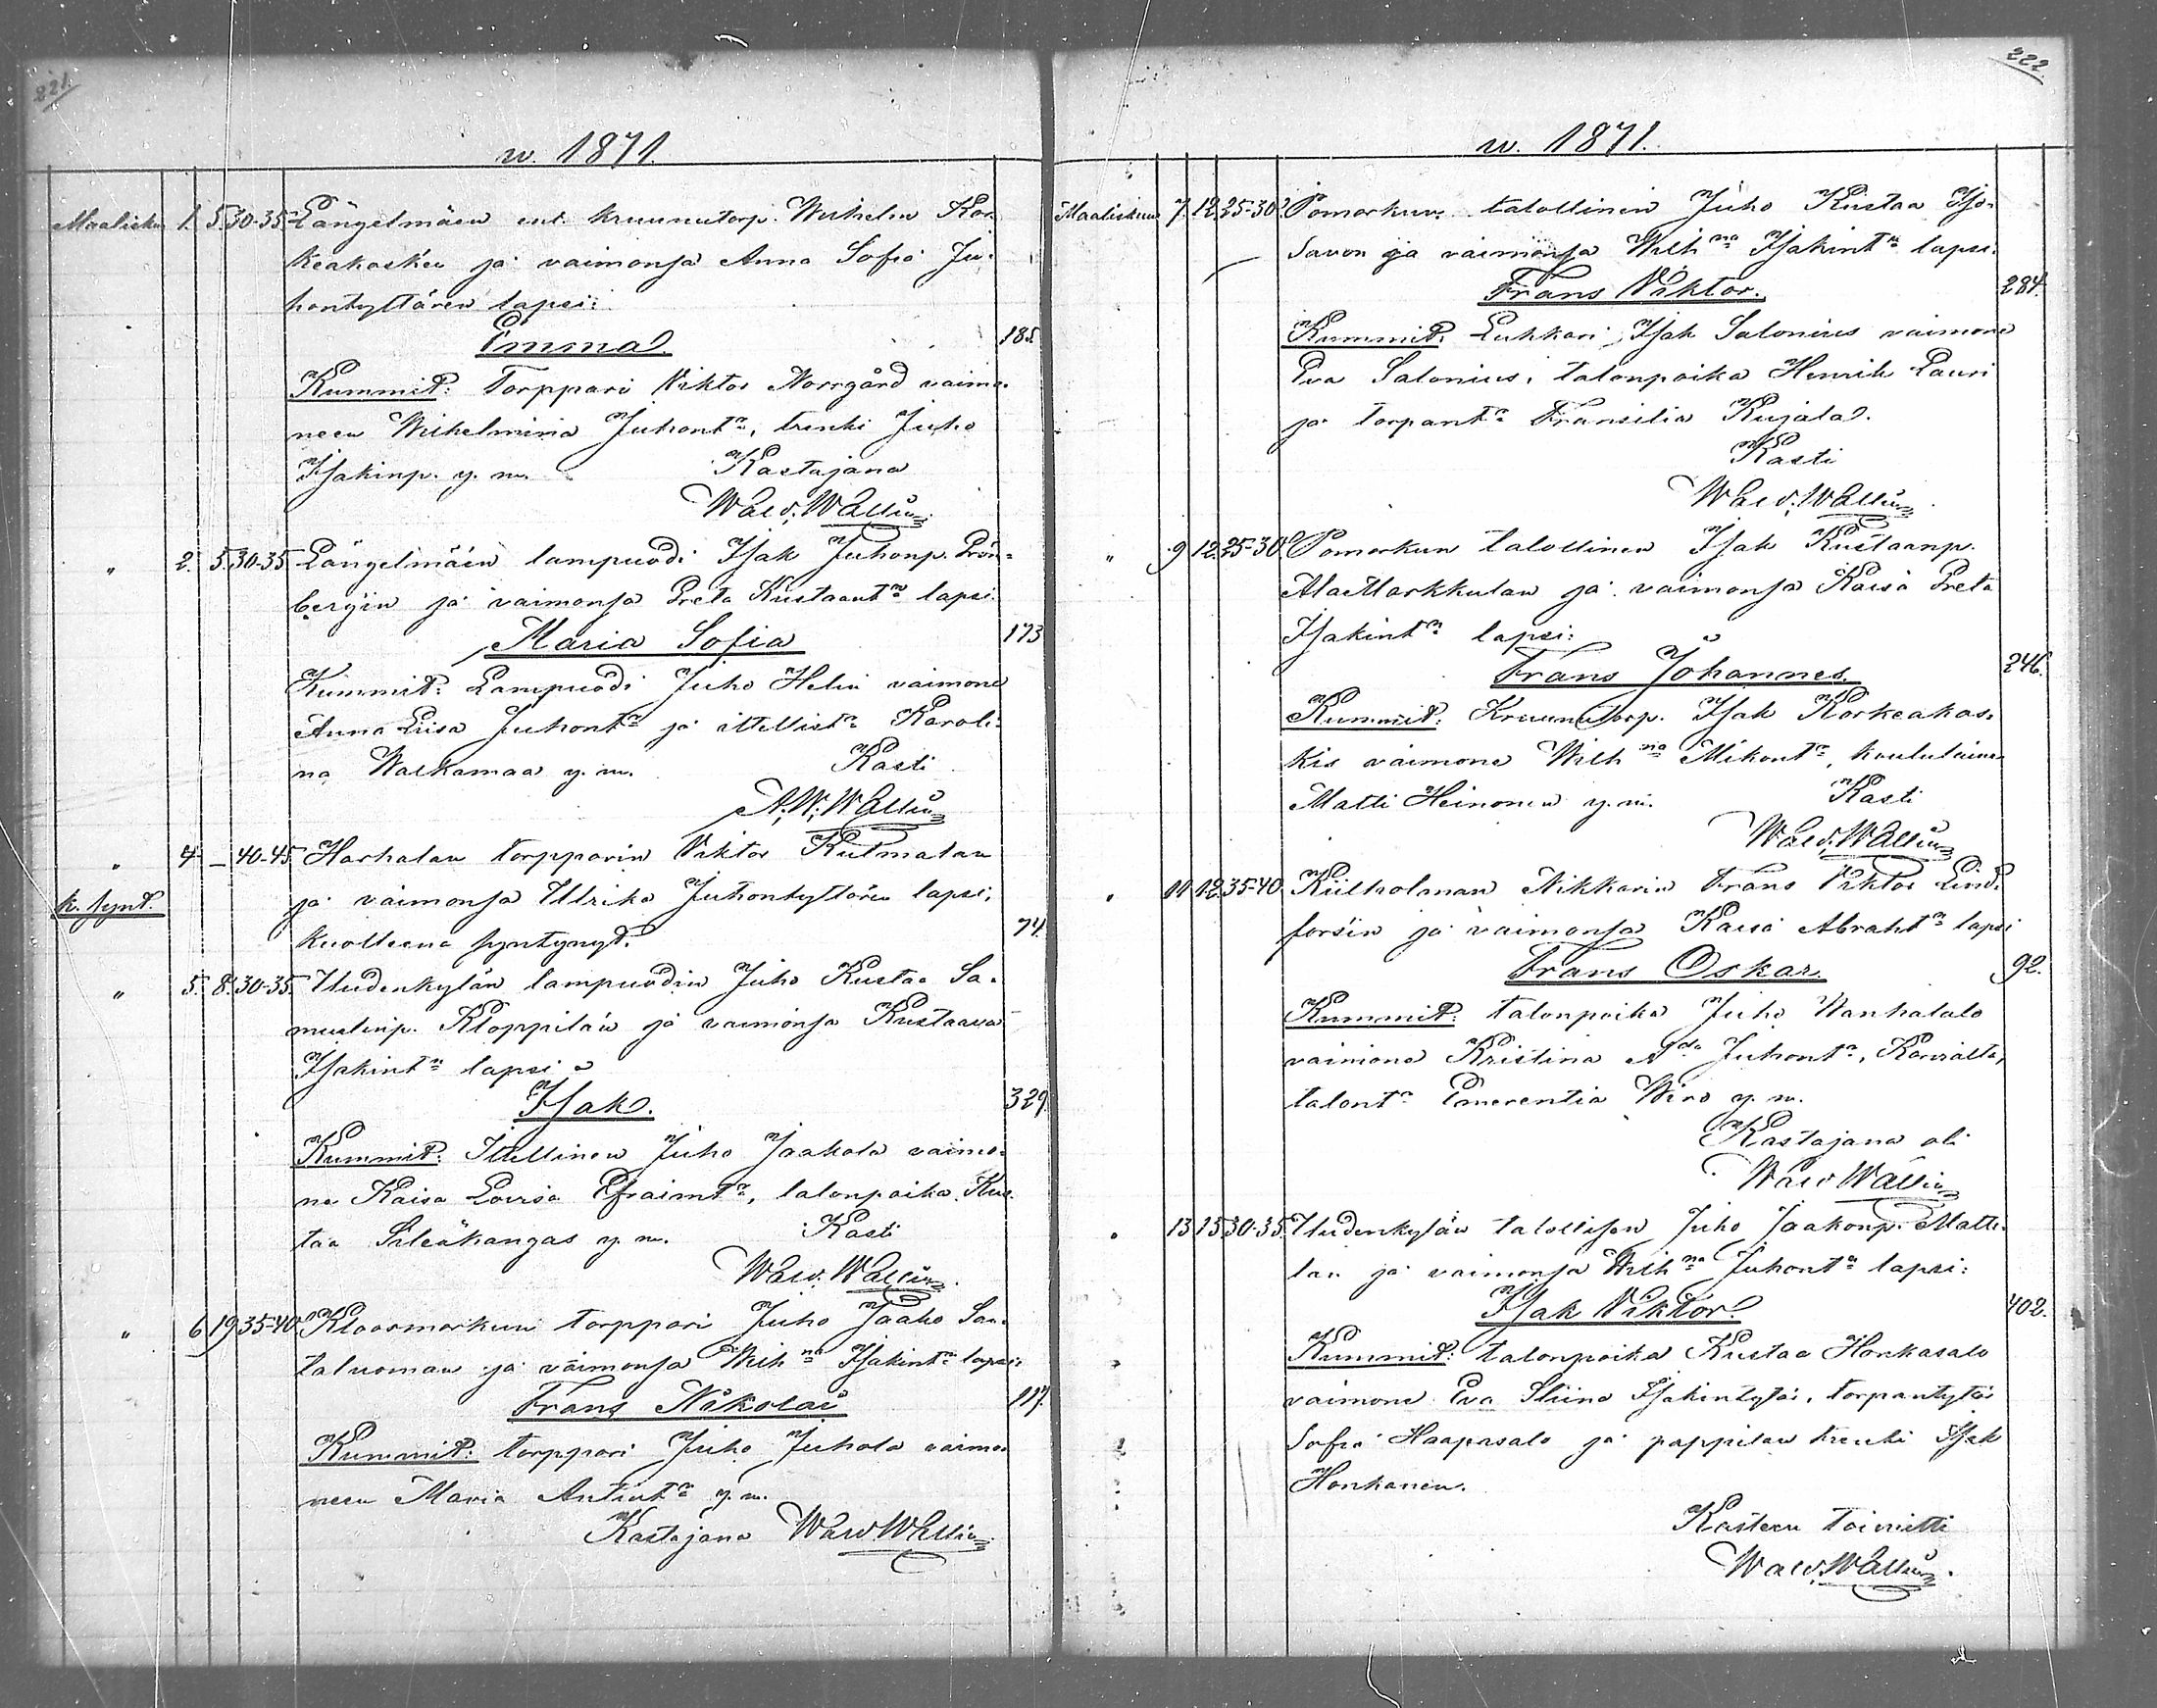 221.
w. 1871.
Maalisku 1. 5. 30-35 Längelmäen ent. kruunutorp. Wilhelm Kor-
keakosken ja vaimonsa Anna Sofia Ju-
hontyttären lapsi:
Emma. 185.
Kummit: Torppari Viktor Norrgård vaimo-
neen Wilhelmina Juhont:r, trenki Juho
Isakinp. y. m. Kastajana
Wald. Wallin.
" 2. 5. 30-35 Längelmäen lampuodi Isak Juhonp. Grön-
bergin ja vaimonsa Greta Kustaant:n lapsi:
Maria Sofia 173
Kummit: Lampuodi Juho Helin vaimone
Anna Liisa Juhont:r ja itellist:r Karoli-
na Walkamaa y. m. Kasti
A. W. Wallin
" 4 — 40-45 Harhalan torpparin Viktor Kulmalan
k. synt. ja vaimonsa Ulrika Juhontyttären lapsi,
kuolleena syntynyt. 74.
" 5. 8. 30-35. Uudenkylän lampuodin Juho Kustaa Sa-
muelinp. Kloppilan ja vaimonsa Kustaava
Isakint:n lapsi
Isak. 329.
Kummit: Itellinen Juho Jaakola vaimo-
ne Kaisa Lovisa Efraimt:r, talonpoika Kus-
taa Sileäkangas y. m. Kasti
Wald. Wallin.
" 6 19 35-40. Kloosmarkun torppari Juho Jaako San-
taluoman ja vaimonsa Wilh:na Isakint:n lapsi:
Frans Nikolai 117.
Kummit: torppari Juho Juhola vaimo-
neen Maria Antint:r y. m.
Kastajana Wald. Wallin
222
w. 1871.
Maaliskuu 7. 12. 25-30. Pomarkun talollinen Juho Kustaa Iso-
Savon ja vaimonsa Wilh:na Isakint:n lapsi.
Frans Viktor. 284.
Kummit: Lukkari Isak Salonius vaimone
Eva Salonius, talonpoika Henrik Lauri
ja torpant:r Fransilia Kujala.
Kasti
Wald. Wallin
" 9 12. 25-30. Pomarkun talollinen Isak Kustaanp.
AlaMarkkulan ja vaimonsa Kaisa Greta
Isakint:n lapsi:
Frans Johannes. 246.
Kummit: Kruunutorp. Isak Korkeakos-
kis vaimone Wilh:na Mikont:r, koululainen
Matti Heinonen y. m. Kasti
Wald. Wallin
" 11 12. 35-40. Kiilholman Nikkarin Frans Viktor Lind-
forsin ja vaimonsa Kaisa Abraht:n lapsi
Frans Oskar. 92.
Kummit: talonpoika Juho Wanhatalo
vaimone Kristina Juhont:r,
talont:r Emerentia Wiro y. m.
Kastajana oli
Wald Wallin
" 13 15. 30-35. Uudenkylän talollisen Juho Jaakonp. Matti-
lan ja vaimonsa Wilh:na Juhont:n lapsi:
Isak Viktor. 402.
Kummit: talonpoika Kustaa Honkasalo
vaimone Eva Stiina Isakintytär, torpantytär
Sofia Haapasalo ja pappilan trenki Isak
Honkanen.
Kasteen toimitti
Wald. Wallin.